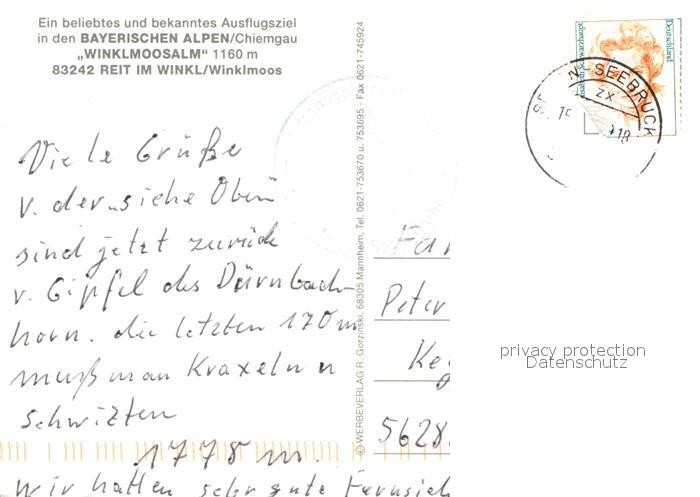 Ein beliebtes und bekanntes Ausflugsziel
in den BAYERISCHEN ALPEN/Chiemgau
„WINKLMOOSALM" 1160 m
83242 REIT IM WINKL/Winklmoos
Viele Grüße
v. der „siehe Oben"
sind jetzt zurück
v. Gipfel des Dürnbach-
horn. die letzten 170m
muß man Kraxeln u
schwitzten
1778 m.
Wir hatten sehr gute Fernsich
© WERBEVERLAG R. Gorzinski, 68305 Mannheim, Tel. 0621-753670 u. 753695 · Fax 0621-745924
Deutschland
Elisabeth Schwarzhaupt
SEEBRUCK
ZX
Fa
Peter
Ke
5628
privacy protection
Datenschutz